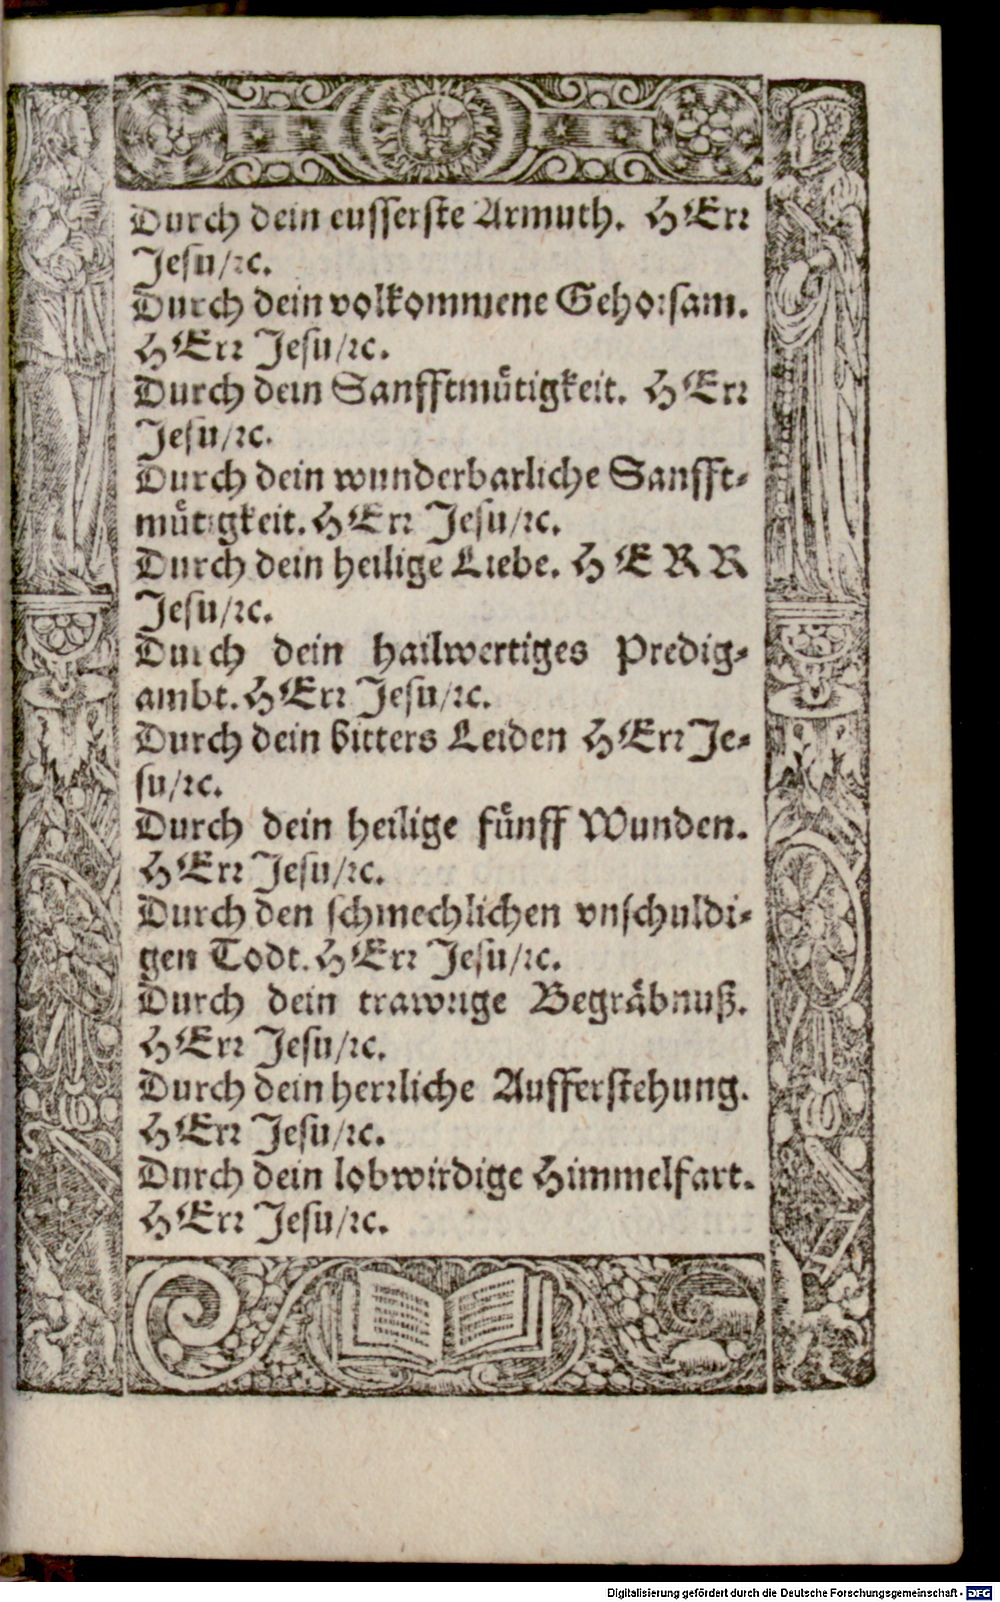 Durch dein eusserste Armuth. HErr
Jesu/ꝛc.
Durch dein volkommene Gehorsam.
HErr Jesu/ꝛc.
Durch dein Sanfftmuͤtigkeit. HErr
Jesu/ꝛc.
Durch dein wunderbarliche Sanfft-
muͤtigkeit. HErr Jesu/ꝛc.
Durch dein heilige Liebe. HERR
Jesu/ꝛc.
Durch dein hailwertiges Predig-
ambt. HErr Jesu/ꝛc.
Durch dein bitters Leiden HErr Je-
su/ꝛc.
Durch dein heilige fuͤnff Wunden.
HErr Jesu/ꝛc.
Durch den schmechlichen vnschuldi-
gen Todt. HErr Jesu/ꝛc.
Durch dein trawrige Begraͤbnuß.
HErr Jesu/ꝛc.
Durch dein herrliche Aufferstehung.
HErr Jesu/ꝛc.
Durch dein lobwirdige Himmelfart.
HErr Jesu/ꝛc.
Digitalisierung gefördert durch die Deutsche Forschungsgemeinschaft - DFG